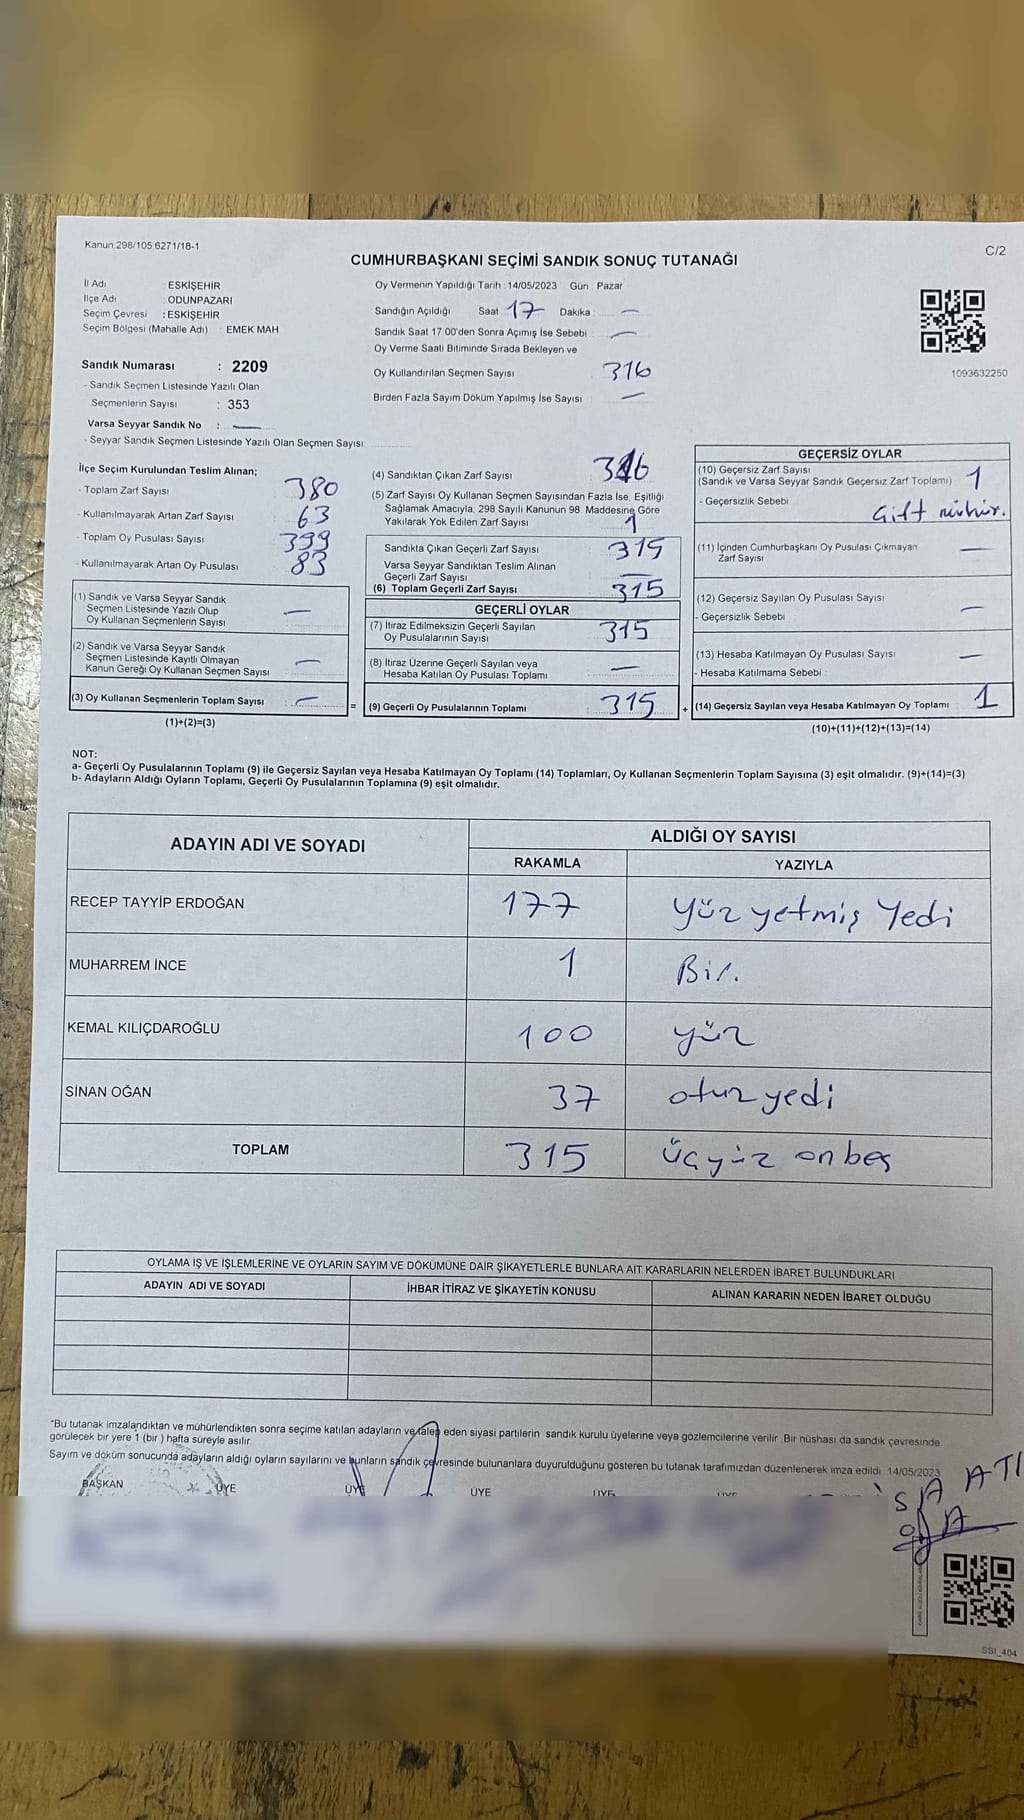 Kanun 298/105 6271/18-1
C/2
CUMHURBAŞKANI SEÇİMİ SANDIK SONUÇ TUTANAĞI
İl Adı ESKİŞEHİR
İlçe Adı : ODUNPAZARI
Seçim Çevresi : ESKİŞEHİR
Seçim Bölgesi (Mahalle Adı) EMEK MAH
Sandık Numarası : 2209
- Sandık Seçmen Listesinde Yazılı Olan
Seçmenlerin Sayısı : 353
Varsa Seyyar Sandık No : —
- Seyyar Sandık Seçmen Listesinde Yazılı Olan Seçmen Sayısı:
Oy Vermenin Yapıldığı Tarih : 14/05/2023 Gün : Pazar
Sandığın Açıldığı Saat 17 Dakika : —
Sandık Saat 17:00'den Sonra Açımış İse Sebebi : —
Oy Verme Saati Bitiminde Sırada Bekleyen ve
Oy Kullandırılan Seçmen Sayısı 316
Birden Fazla Sayım Döküm Yapılmış İse Sayısı —
1093632250
İlçe Seçim Kurulundan Teslim Alınan;
- Toplam Zarf Sayısı 380
- Kullanılmayarak Artan Zarf Sayısı 63
- Toplam Oy Pusulası Sayısı 399
- Kullanılmayarak Artan Oy Pusulası 83
(1) Sandık ve Varsa Seyyar Sandık
Seçmen Listesinde Yazılı Olup
Oy Kullanan Seçmenlerin Sayısı —
(2) Sandık ve Varsa Seyyar Sandık
Seçmen Listesinde Kayıtlı Olmayan
Kanun Gereği Oy Kullanan Seçmen Sayısı —
(3) Oy Kullanan Seçmenlerin Toplam Sayısı —
(1)+(2)=(3)
(4) Sandıktan Çıkan Zarf Sayısı 316
(5) Zarf Sayısı Oy Kullanan Seçmen Sayısından Fazla İse, Eşitliği
Sağlamak Amacıyla, 298 Sayılı Kanunun 98. Maddesine Göre
Yakılarak Yok Edilen Zarf Sayısı 1
Sandıkta Çıkan Geçerli Zarf Sayısı 315
Varsa Seyyar Sandıktan Teslim Alınan
Geçerli Zarf Sayısı —
(6) Toplam Geçerli Zarf Sayısı 315
GEÇERLİ OYLAR
(7) İtiraz Edilmeksizin Geçerli Sayılan
Oy Pusulalarının Sayısı 315
(8) İtiraz Üzerine Geçerli Sayılan veya
Hesaba Katılan Oy Pusulası Toplamı —
= (9) Geçerli Oy Pusulalarının Toplamı 315
GEÇERSİZ OYLAR
(10) Geçersiz Zarf Sayısı
(Sandık ve Varsa Seyyar Sandık Geçersiz Zarf Toplamı) 1
- Geçersizlik Sebebi
Çift mühür.
(11) İçinden Cumhurbaşkanı Oy Pusulası Çıkmayan
Zarf Sayısı —
(12) Geçersiz Sayılan Oy Pusulası Sayısı
- Geçersizlik Sebebi —
(13) Hesaba Katılmayan Oy Pusulası Sayısı —
- Hesaba Katılmama Sebebi
+ (14) Geçersiz Sayılan veya Hesaba Katılmayan Oy Toplamı 1
(10)+(11)+(12)+(13)=(14)
NOT:
a- Geçerli Oy Pusulalarının Toplamı (9) ile Geçersiz Sayılan veya Hesaba Katılmayan Oy Toplamı (14) Toplamları, Oy Kullanan Seçmenlerin Toplam Sayısına (3) eşit olmalıdır. (9)+(14)=(3)
b- Adayların Aldığı Oyların Toplamı, Geçerli Oy Pusulalarının Toplamına (9) eşit olmalıdır.
ADAYIN ADI VE SOYADI ALDIĞI OY SAYISI
RAKAMLA YAZIYLA
RECEP TAYYİP ERDOĞAN 177 yüz yetmiş Yedi
MUHARREM İNCE 1 Bir.
KEMAL KILIÇDAROĞLU 100 yüz
SİNAN OĞAN 37 otuz yedi
TOPLAM 315 üçyüz on beş
OYLAMA İŞ VE İŞLEMLERİNE VE OYLARIN SAYIM VE DÖKÜMÜNE DAİR ŞİKAYETLERLE BUNLARA AİT KARARLARIN NELERDEN İBARET BULUNDUKLARI
ADAYIN ADI VE SOYADI İHBAR İTİRAZ VE ŞİKAYETİN KONUSU ALINAN KARARIN NEDEN İBARET OLDUĞU
*Bu tutanak imzalandıktan ve mühürlendikten sonra seçime katılan adayların ve talep eden siyasi partilerin sandık kurulu üyelerine veya gözlemcilerine verilir. Bir nüshası da sandık çevresinde
görülecek bir yere 1 (bir) hafta süreyle asılır.
Sayım ve döküm sonucunda adayların aldığı oyların sayılarını ve bunların sandık çevresinde bulunanlara duyurulduğunu gösteren bu tutanak tarafımızdan düzenlenerek imza edildi 14/05/2023
BAŞKAN ÜYE ÜYE ÜYE ÜYE ÜYE
SSI_404